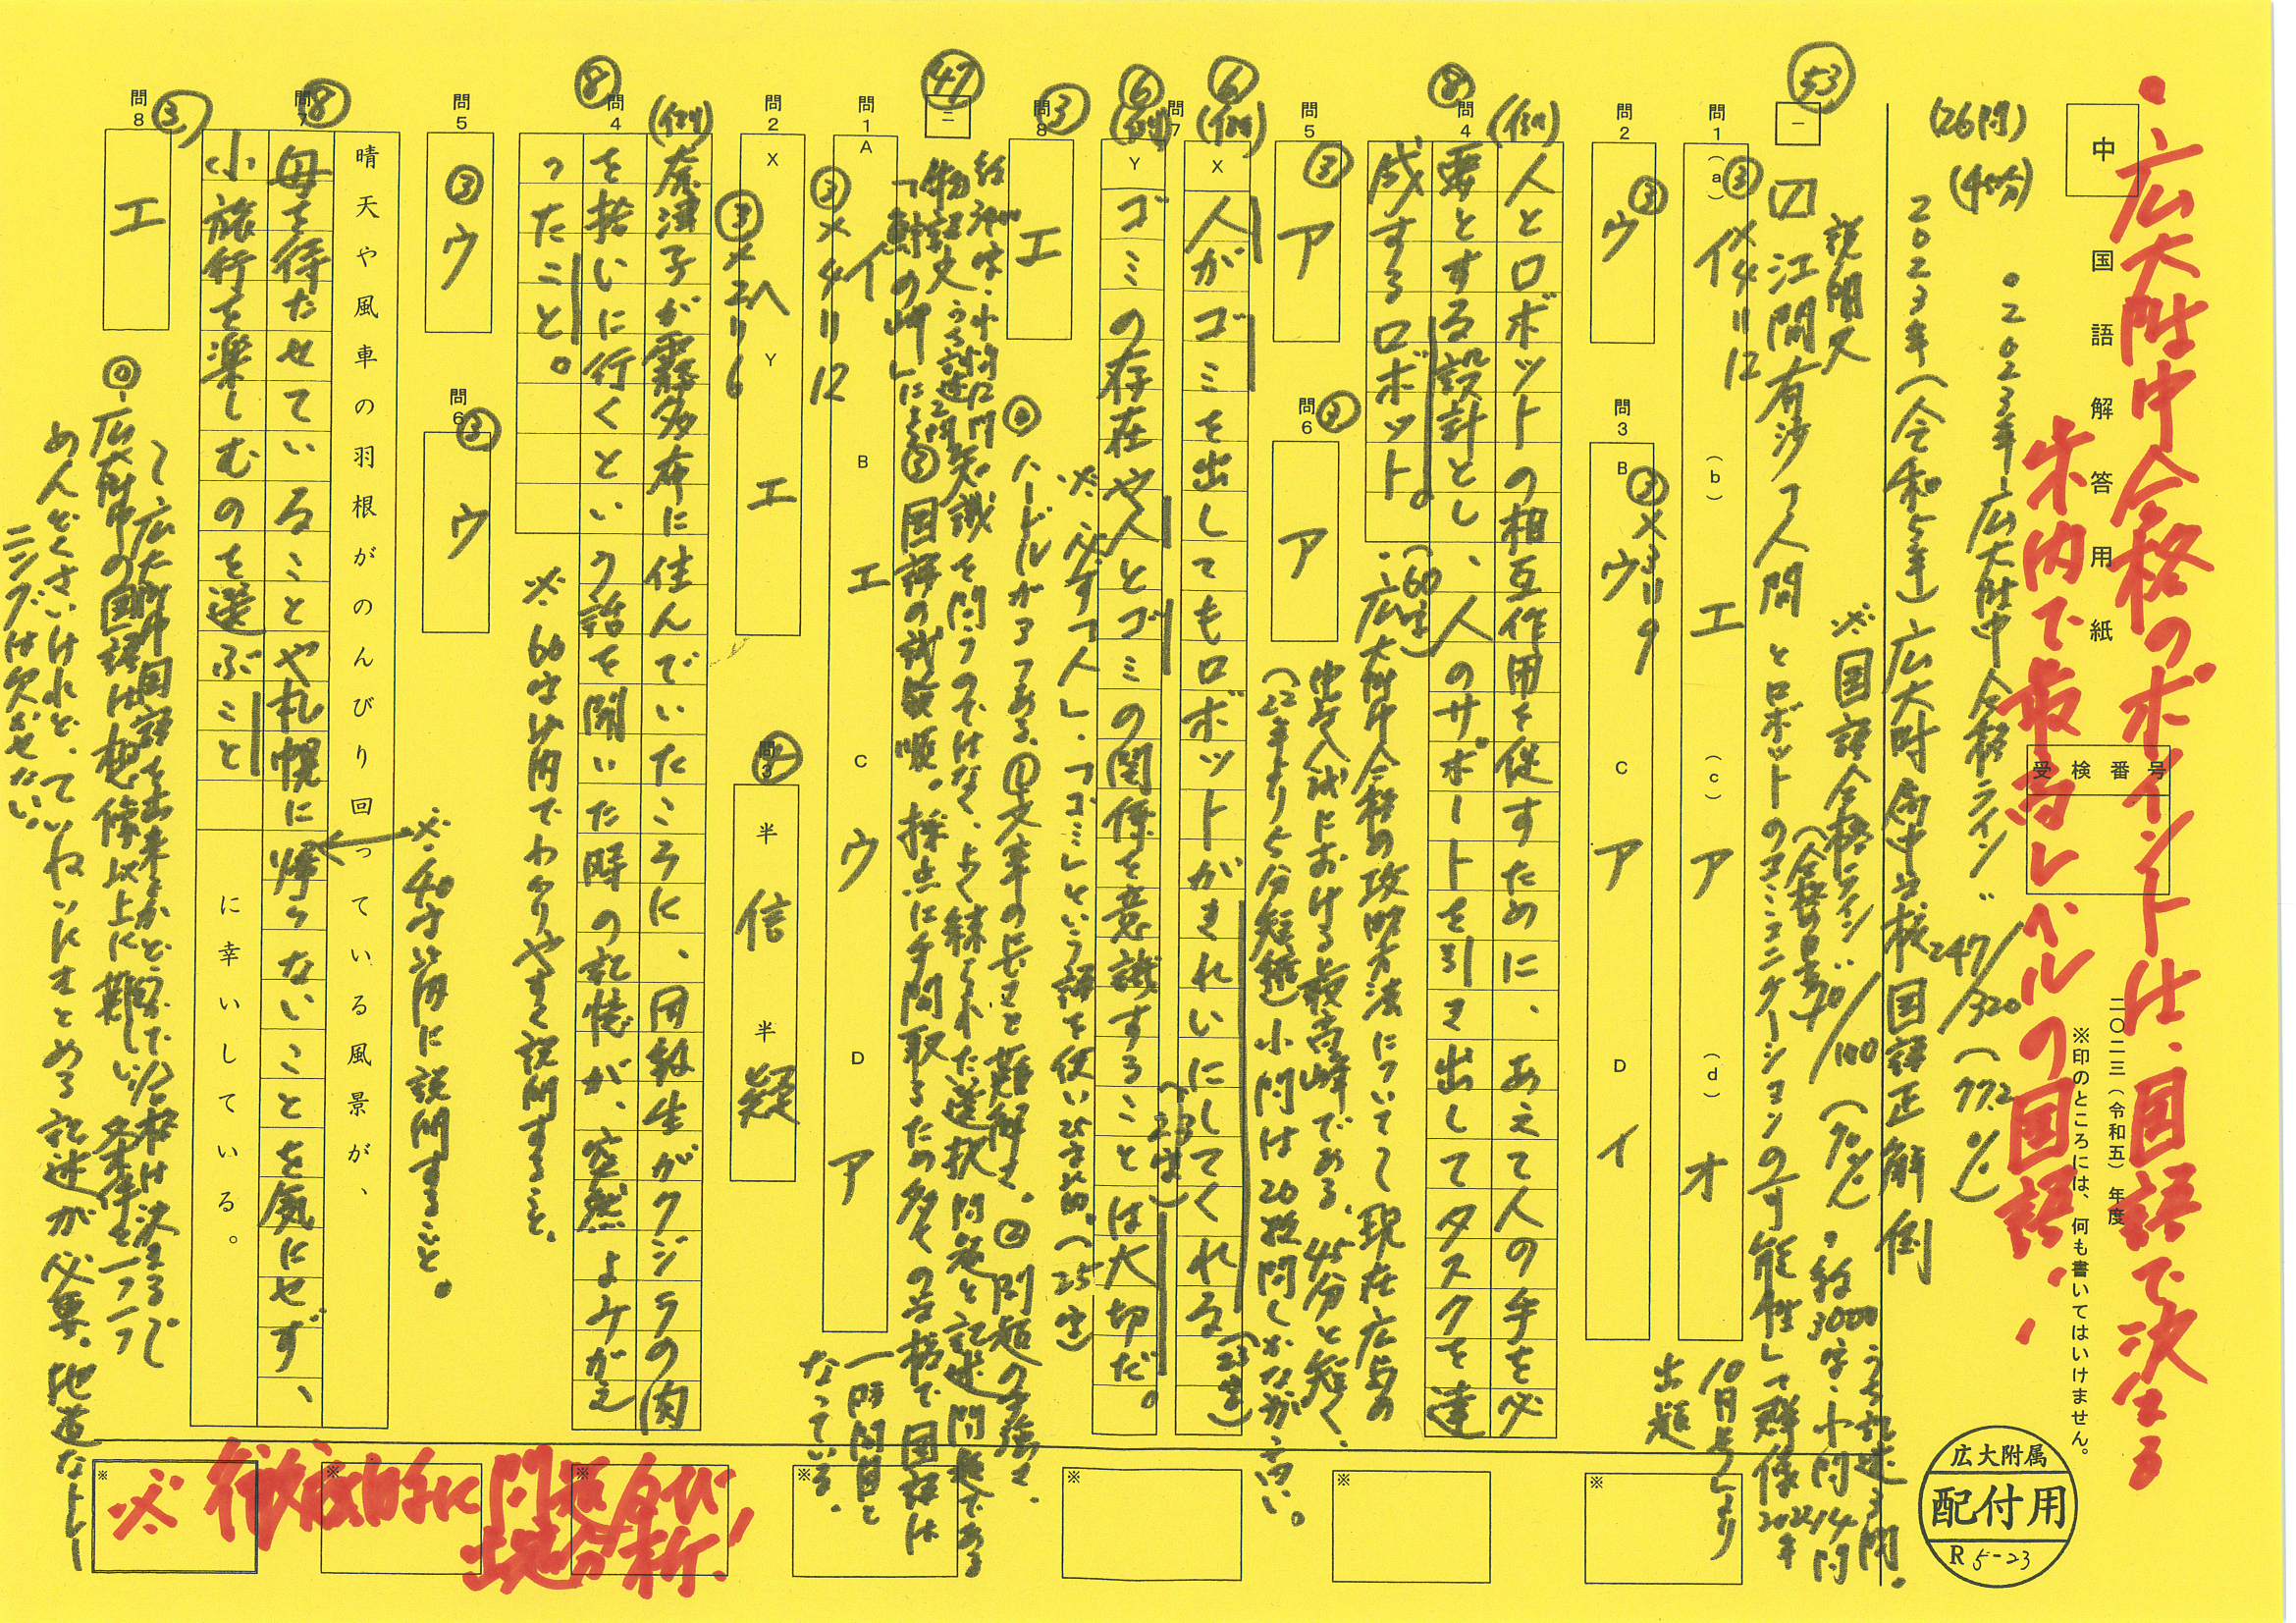 ・広大附中合格のポイントは、国語で決まる
県内で最高レベルの国語、、
中国語解答用紙
受検番号
二〇二三(令和五)年度
※印のところには、何も書いてはいけません。
広大附属
配付用
R5-23
。2023年‐広大附中合格ライン‥247/320(77.2%)
(26問)
(45分)
2023年(令和5年)広大附属中学校国語正解例
※国語合格ライン‥70/100(70%)
(合格の目安)
53
一
説明文
約3000字・小問14問
うち記述3問。
江間有沙『人間とロボットのコミュニケーションの可能性』
問1
③×4=12
(a)イ
(b)エ
(c)ア
(d)オ
問2
③
ウ
問3
③×3=9
Bウ
Cア
Dイ
10月号より
出題
問4
⑧
(例)
人とロボットの相互作用を促すために、あえて人の手を必
要とする設計とし、人のサポートを引き出してタスクを達
成するロボット。
(60字)
問5
③
ア
問6
③
ア
・広大附中合格の攻略方法について〜現在広島の
中学入試における最高峰である。45分と短く、
(22年より5分短縮)小問は26設問しかないが高い。
問7
⑥
(例)
X
人がゴミを出してもロボットがきれいにしてくれる
(23字)
⑥
(例)
Y
ゴミの存在や人とゴミの関係を意識することは大切だ。
問8
③
エ
※必ず「人」、「ゴミ」という語を使い25字以内。(25字)
◎ハードルが3つある、①文章の長さと難解さ。②問題の手強さ。
47
二
物語文
「鯨の岬」による
③国語の試験順。採点に手間取るため多くの合格で国語は
一時間目と
なっている。
問1
③×4=12
Aイ
Bエ
Cウ
Dア
問2
③×2=6
Xハ
Yエ
問3
半信半疑
問4
⑧
(例)
奈津子が霧多布に住んでいたころに、同級生がクジラの肉
を拾いに行くという話を聞いた時の記憶が、突然よみがえ
ったこと。
※60字以内でわかりやすく説明すること。
問5
③
ウ
問6
③
ウ
※40字以内に説明すること。
問7
⑧
晴天や風車の羽根がのんびり回っている風景が、
母を待たせていることや札幌に帰らないことを気にせず、
小旅行を楽しむのを選ぶこと
に幸いしている。
問8
③
エ
〜広大附中国語を出来るかどうかで合格は決まる〜
◎広大附中の国語は想像以上に難しい。条件を一つ一つ
めんどくさいけれど、ていねいにまとめる記述が必要。地道なトレー
ニングは欠かせない。
※徹底的に問題を分析!